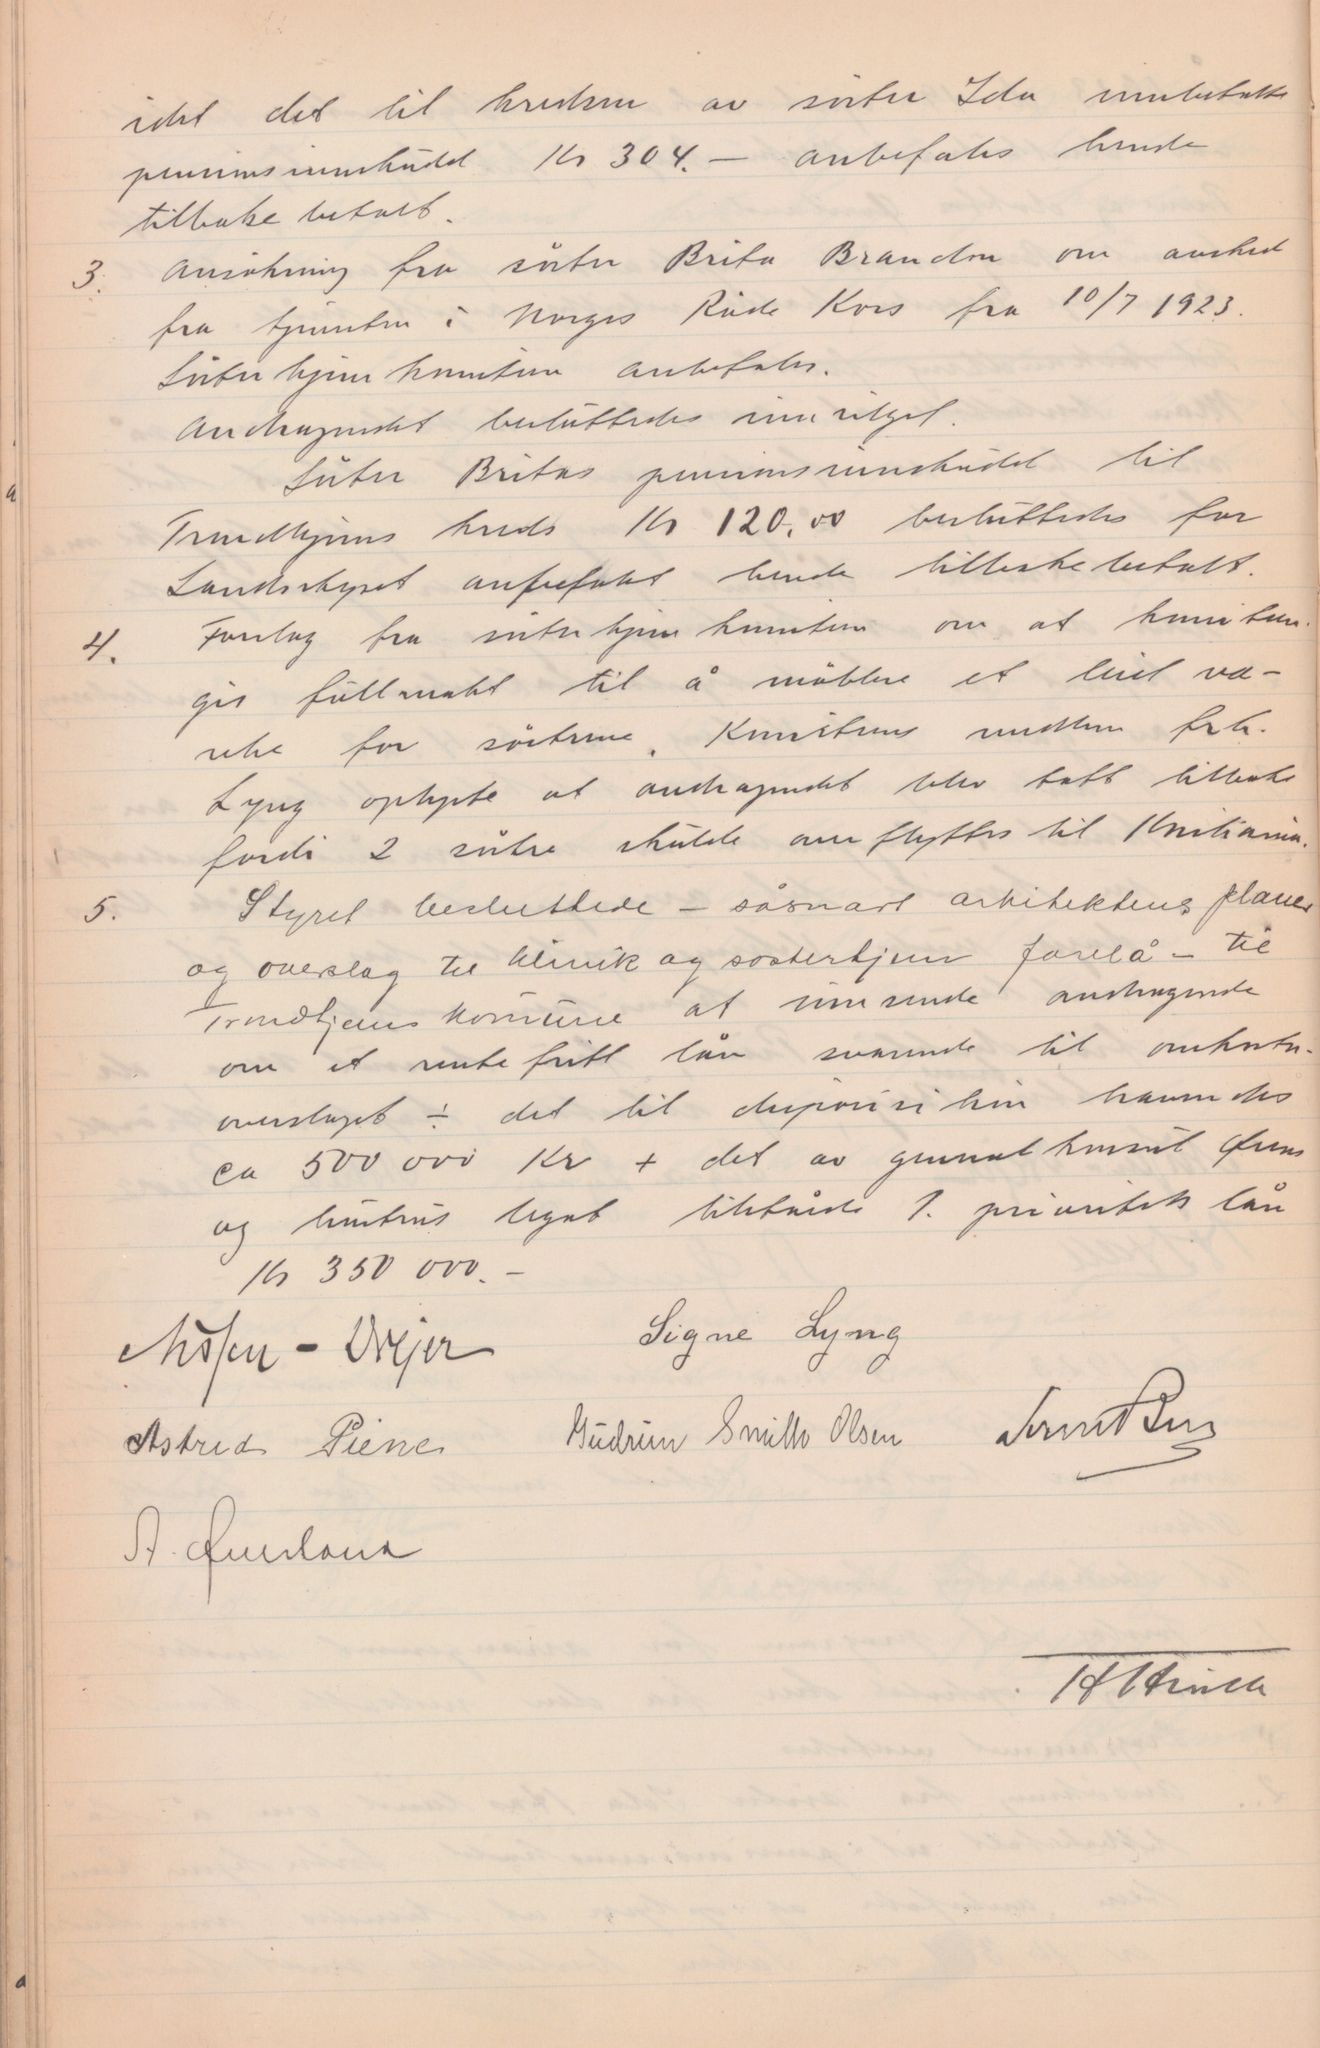 idet det til kredsen av søster Ida innbetalte
pensionsinnskudd Kr 304.— anbefales hende
tilbake betalt.
3. Ansökning fra söster Brita Brandon om avsked
fra tjenesten i Norges Röde Kors fra 10/7 1923.
Sösterhjemkomiteen anbefaler.
Andragendet besluttedes innvilget.
Söster Britas pensionsinnskudd til
Trondhjems kreds Kr 120.00 besluttedes for
Landsstyret anbefalet hende tilbakebetalt.
4. Forslag fra sösterhjemkomiteen om at komiteen
gis fullmakt til å möblere et leiet væ-
relse for söstrene. Komiteens medlem frk.
Lyng oplyste at andragendet blev tatt tilbake
fordi 2 söstre skulde overflyttes til Kristiania.
5. Styret besluttede – såsnart arkitektens planer
og overslag til klinik og søsterhjem forelå – til
Trondhjems kommune at innsende andragende
om et rentefritt lån svarende til omkostn.
overslaget ÷ det til disposisjon havendes
ca 500 000 Kr + det av generalkonsul
og hustrus legat tilståede 1. prioritets lån
Kr 350 000.–
Signe Lyng
Astrid Piene Gudrun Smith Olsen
A. Øverland